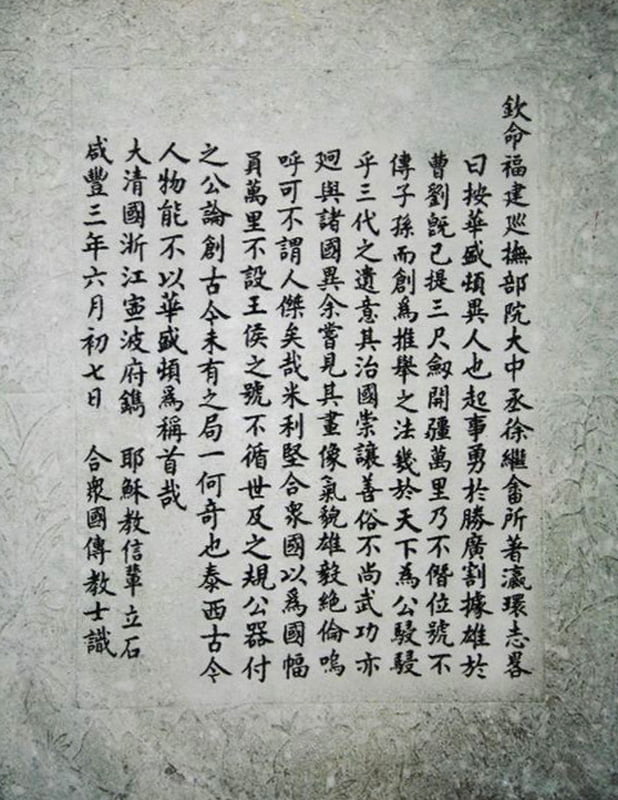 欽命福建巡撫部院大中丞徐繼畬所著瀛環志畧
曰按華盛頓異人也起事勇於勝廣割據雄於
曹劉旣已提三尺劒開疆萬里乃不僭位號不
傳子孫而創爲推舉之法幾於天下為公駸駸
乎三代之遺意其治國崇讓善俗不尚武功亦
迥與諸國異余嘗見其畫像氣貌雄毅絶倫嗚
呼可不謂人傑矣哉米利堅合衆國以爲國幅
員萬里不設王侯之號不循世及之規公器付
之公論創古今未有之局一何奇也泰西古今
人物能不以華盛頓爲稱首哉
大清國浙江寧波府鐫 耶穌教信輩立石
咸豐三年六月初七日 合衆國傳教士識